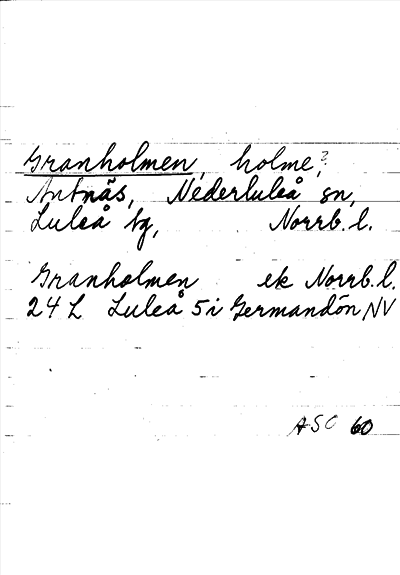 Granholmen, holme,?
Antnäs, Nederluleå sn,
Luleå tg, Norrb. l.
Granholmen ek Norrb. l.
24 L Luleå 5i Germandön, NV
ASO 60